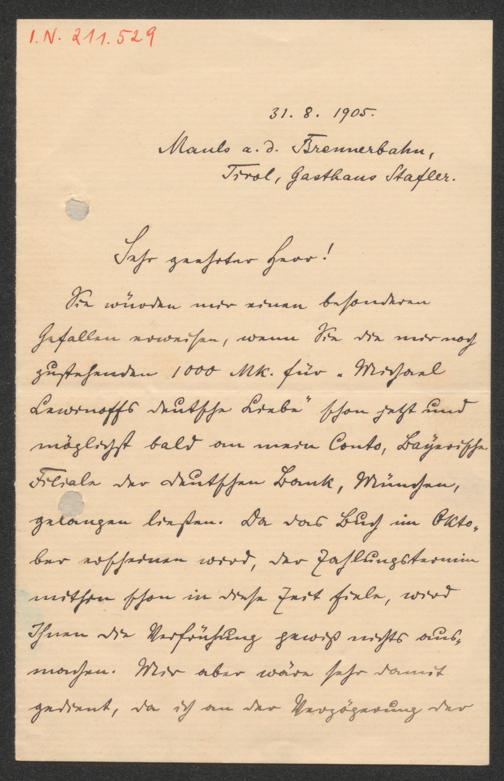 I.N. 211.529
31. 8. 1905.
Mauls a. d. Brennerbahn,
Tirol, Gasthaus Stafler.
Sehr geehrter Herr!
Sie würden mir einen besonderen
Gefallen erweisen, wenn Sie die mir noch
zustehenden 1000 Mk. für „Michael
Lewinoffs deutsche Liebe" schon jetzt und
möglichst bald an mein Conto, Bayerische
Filiale der deutschen Bank, München,
gelangen ließen. Da das Buch im Okto-
ber erscheinen wird, der Zahlungstermin
mithin schon in diese Zeit fiele, wird
Ihnen die Verfrühung gewiß nichts aus-
machen. Mir aber wäre sehr damit
gedient, da ich an der Verzögerung der